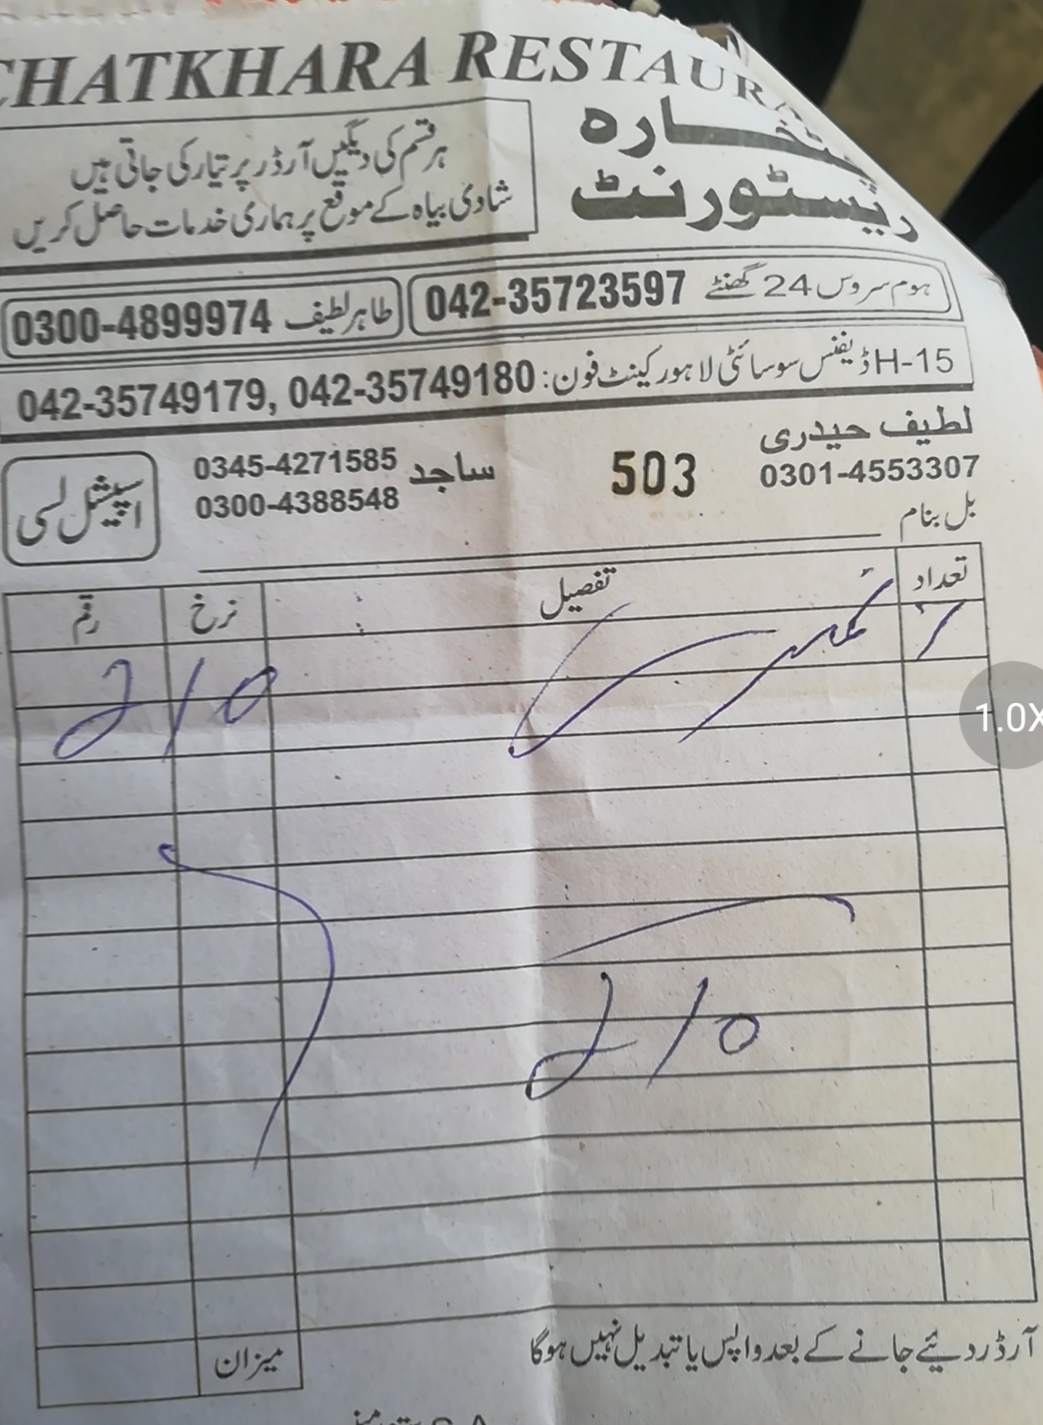 CHATKHARA RESTAURA
چٹخارہ
ریسٹورنٹ
ہر قسم کی دیگیں آرڈر پر تیار کی جاتی ہیں
شادی بیاہ کے موقع پر ہماری خدمات حاصل کریں
ہوم سروس 24 گھنٹے 042-35723597
طاہر لطیف 0300-4899974
15-H ڈیفنس سوسائٹی لاہور کینٹ فون: 042-35749179, 042-35749180
لطیف حیدری
0301-4553307
503
ساجد 0345-4271585
0300-4388548
اسپیشل لسی
بل بنام
تعداد تفصیل نرخ رقم
210
210
میزان
آرڈر دیئے جانے کے بعد واپس یا تبدیل نہیں ہوگا
1.0X